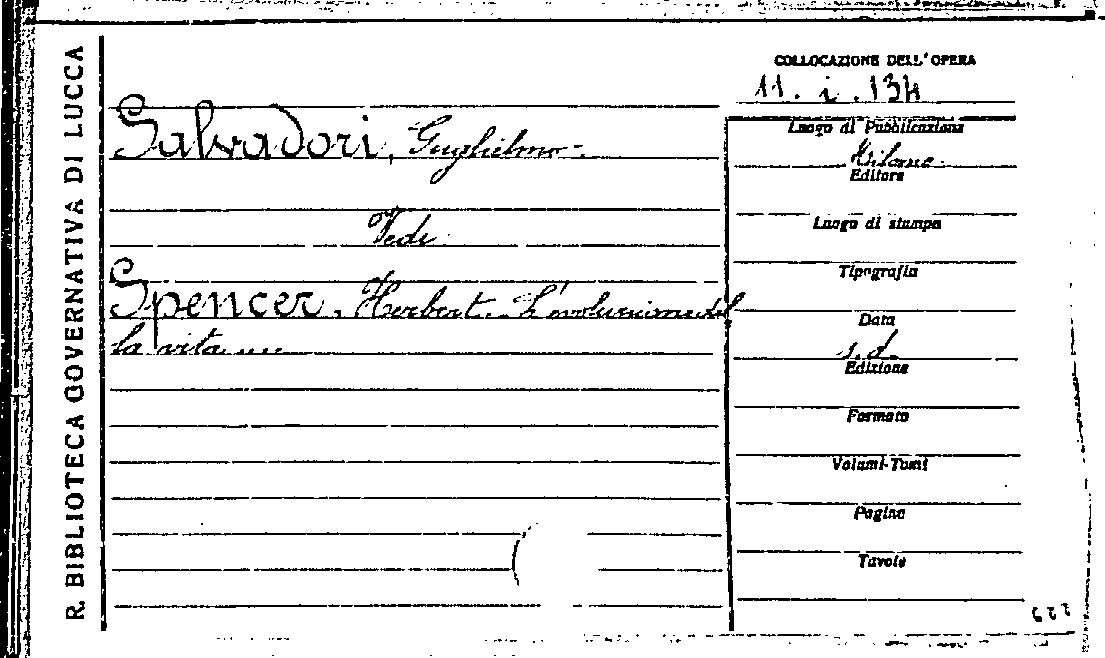 R. BIBLIOTECA GOVERNATIVA DI LUCCA
COLLOCAZIONE DELL'OPERA
11. i. 134
Salvadori, Guglielmo.
Vedi
Spencer, Herbert. L'evoluzione del
la vita ...
Luogo di Pubblicazione
Milano
Editore
Luogo di stampa
Tipografia
Data
s. d.
Edizione
Formato
Volumi-Tomi
Pagine
Tavole